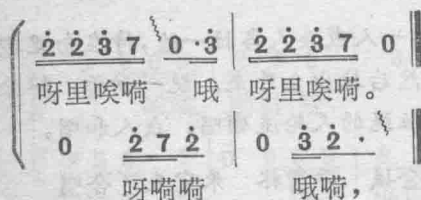 2̇ 2̇ 3̇ 7 0 · 3̇ | 2̇ 2̇ 3̇ 7 0
呀里唉嗬 哦 呀里唉嗬。
0 2̇ 7 2̇ | 0 3̇ 2̇ ·
呀嗬嗬 哦嗬，